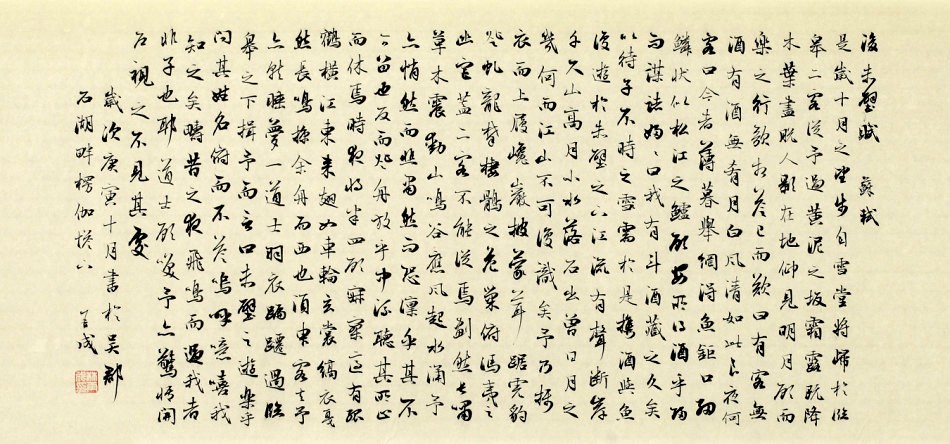 後赤壁賦 蘇軾
是歲十月之望步自雪堂將歸於臨
皋二客從予過黃泥之坂霜露既降
木葉盡脫人影在地仰見明月顧而
樂之行歌相答已而歎曰有客無
酒有酒無肴月白風清如此良夜何
客曰今者薄暮舉網得魚鉅口細
鱗狀似松江之鱸顧安所得酒乎歸
而謀諸婦婦曰我有斗酒藏之久矣
以待子不時之需於是攜酒與魚
復遊於赤壁之下江流有聲斷岸
千尺山高月小水落石出曾日月之
幾何而江山不可復識矣予乃攝
衣而上履巉巖披蒙茸踞虎豹
登虬龍攀棲鶻之危巢俯馮夷之
幽宮蓋二客不能從焉劃然長嘯
草木震動山鳴谷應風起水涌予
亦悄然而悲肅然而恐凜乎其不
可留也反而登舟放乎中流聽其所止
而休焉時夜將半四顧寂寥適有孤
鶴橫江東來翅如車輪玄裳縞衣戛
然長鳴掠余舟而西也須臾客去予
亦就睡夢一道士羽衣蹁躚過臨
皋之下揖予而言曰赤壁之遊樂乎
問其姓名俯而不答嗚呼噫嘻我
知之矣疇昔之夜飛鳴而過我者
非子也耶 道士顧笑予亦驚悟開
戶視之不見其處
歲次庚寅十月書於吳郡
石湖畔楞伽塔下 成